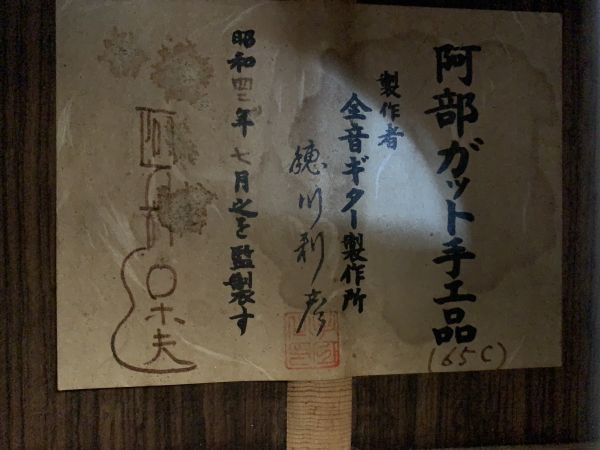 阿部ガット手工品
(65C)
製作者
全音ギター製作所
穂川利彦
昭和四二年七月之を監製す
阿部保夫